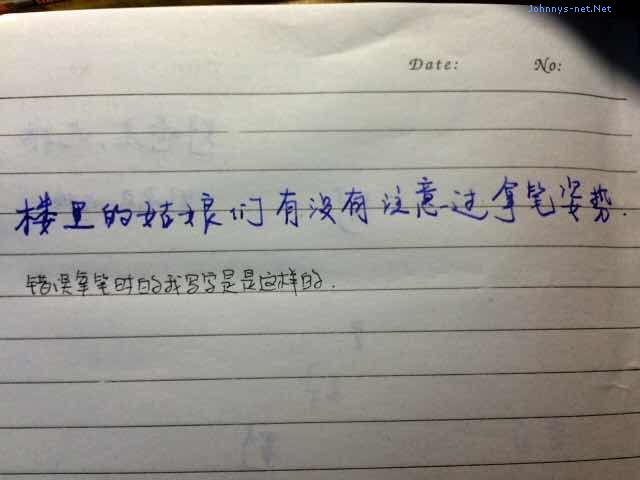 Johnnys-net.Net
Date: No:
楼里的姑娘们有没有注意过拿笔姿势.
错误拿笔时的我写字是是这样的.